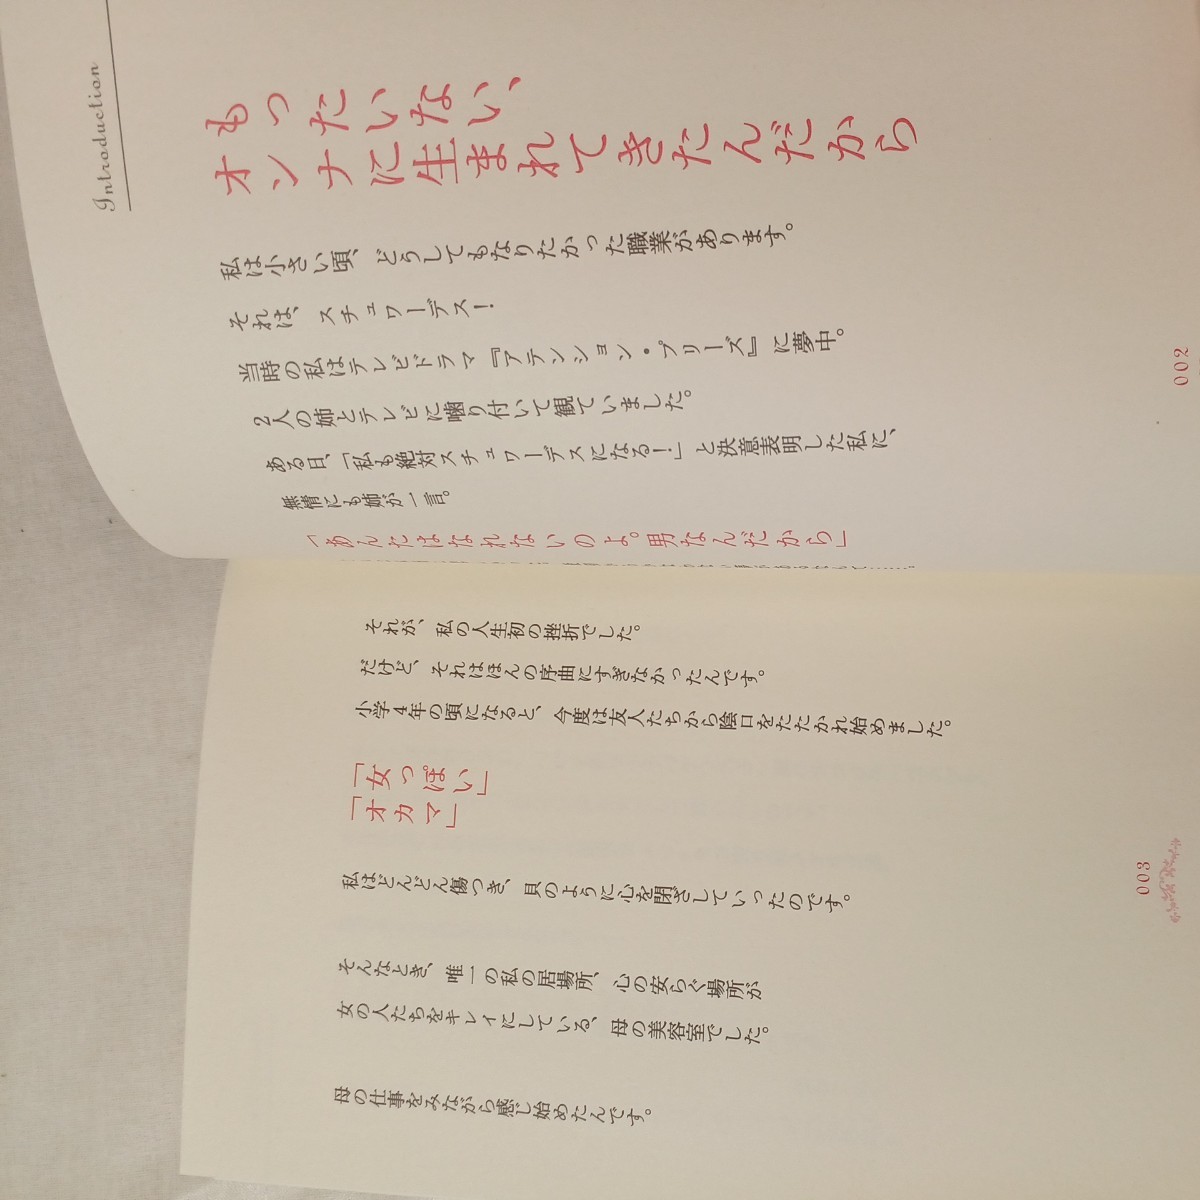 Introduction
もったいない、
オンナに生まれてきたんだから
私は小さい頃、どうしてもなりたかった職業があります。
それは、スチュワーデス！
当時の私はテレビドラマ『アテンション・プリーズ』に夢中。
2人の姉とテレビに噛り付いて観ていました。
ある日、「私も絶対スチュワーデスになる！」と決意表明した私に、
無情にも姉が一言。
「あんたはなれないのよ。男なんだから」
002
それが、私の人生初の挫折でした。
だけど、それはほんの序曲にすぎなかったんです。
小学4年の頃になると、今度は友人たちから陰口をたたかれ始めました。
「女っぽい」
「オカマ」
私はどんどん傷つき、貝のように心を閉ざしていったのです。
そんなとき、唯一の私の居場所、心の安らぐ場所が
女の人たちをキレイにしている、母の美容室でした。
母の仕事をみながら感じ始めたんです。
003